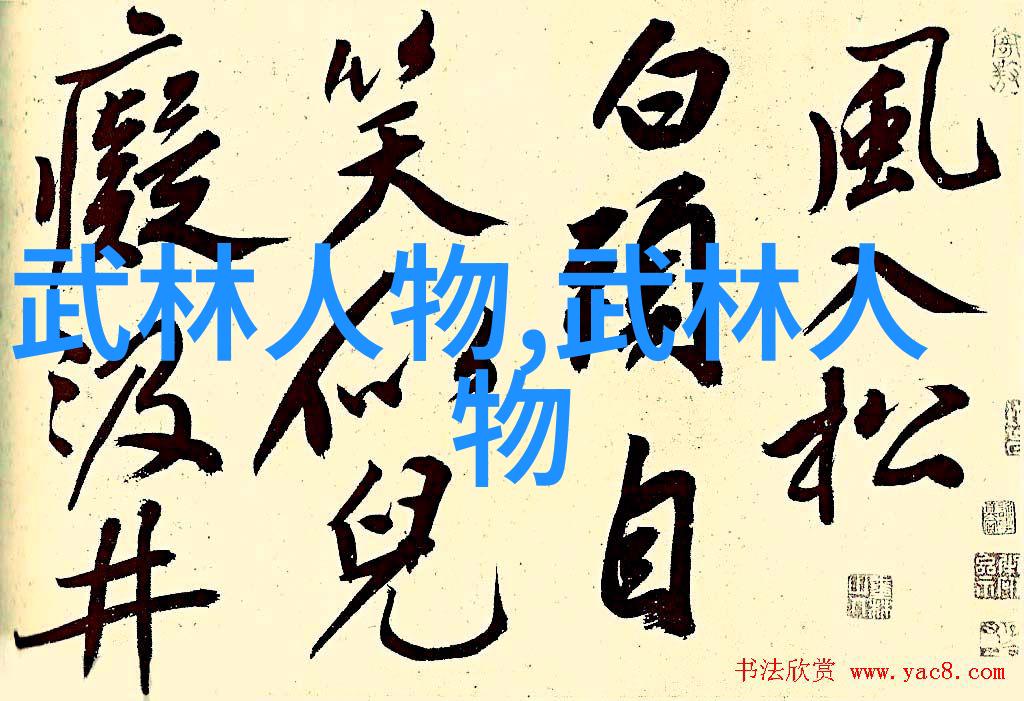 風入松
白頭自
笑似兒
癡汲井
武林人物,武林人
物
书法欣赏 www.yac8.com